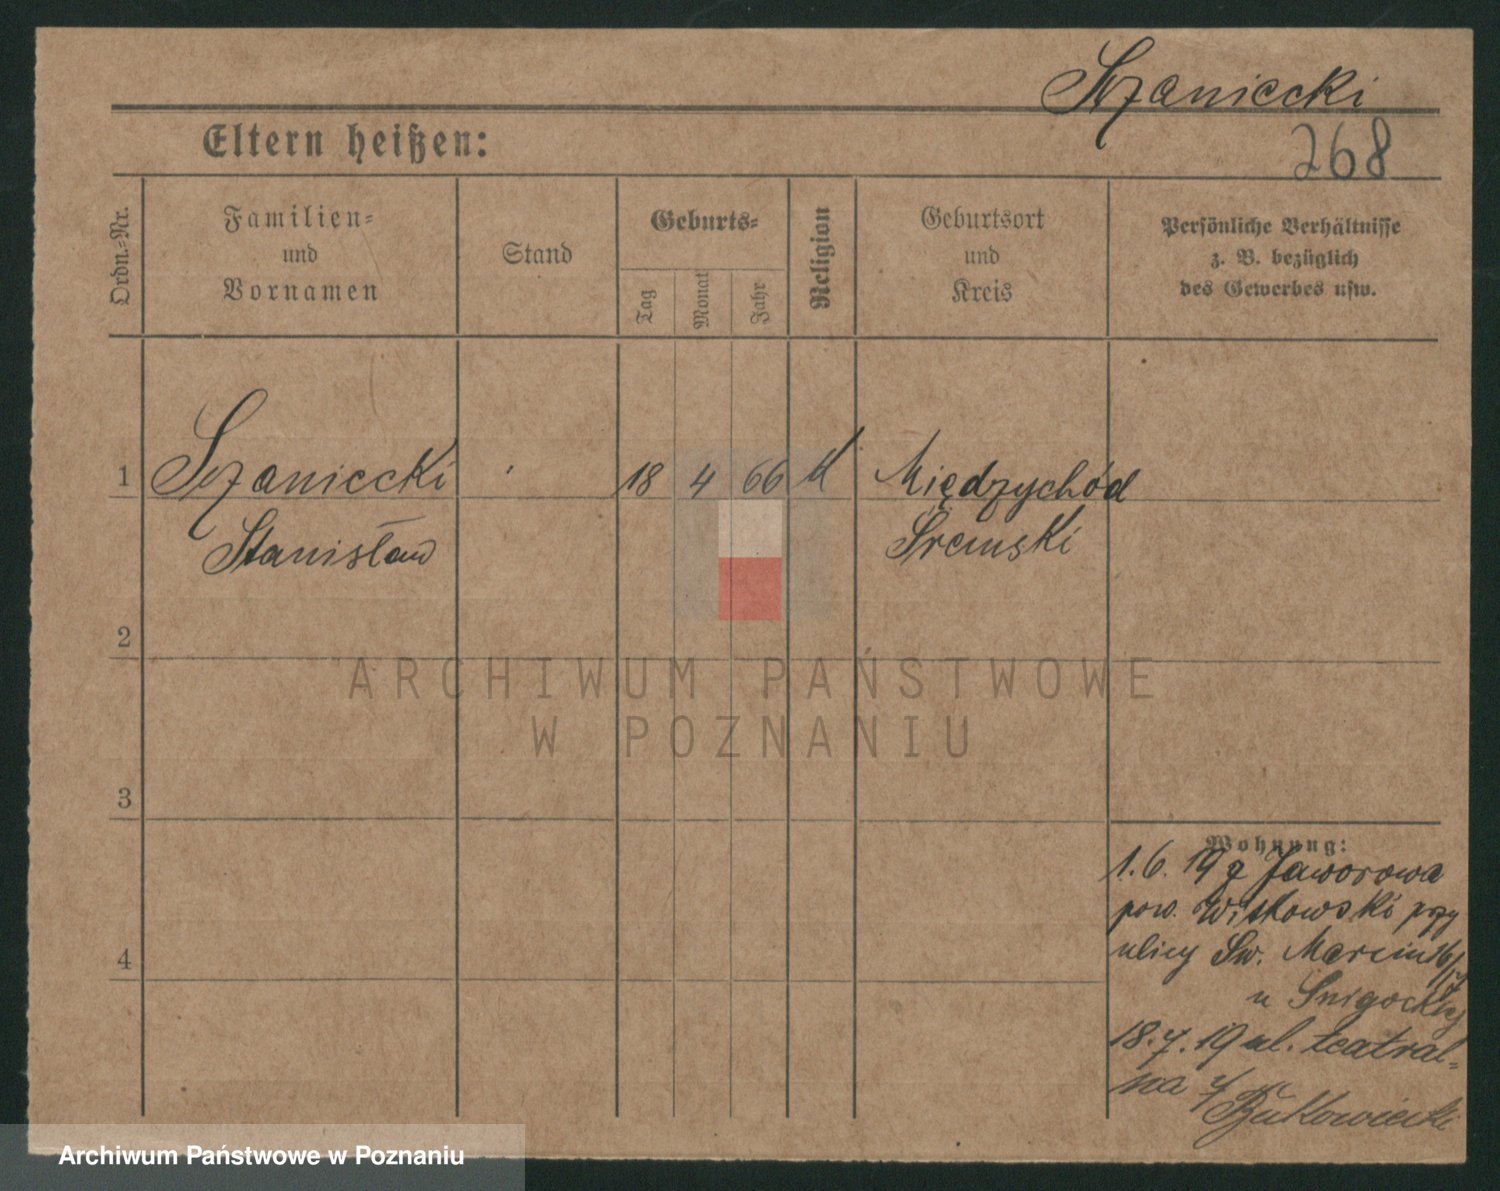 Szaniecki
268
Eltern heißen:
Ordn.-Nr.
Familien-
und
Vornamen
Stand
Geburts-
Tag
Monat
Jahr
Religion
Geburtsort
und
Kreis
Persönliche Verhältnisse
z. B. bezüglich
des Gewerbes usw.
1 Szaniecki 18 4 66 k Międzychód
Stanisław Śremski
2
ARCHIWUM PAŃSTWOWE
W POZNANIU
3
Wohnung:
1.6.19 z Jaworowa
pow. Witkowski przy
ulicy Św. Marcin 16/17
u Śnigockiej
4
18.7.19 ul. teatral-
na 4
Bukowiecki
Archiwum Państwowe w Poznaniu